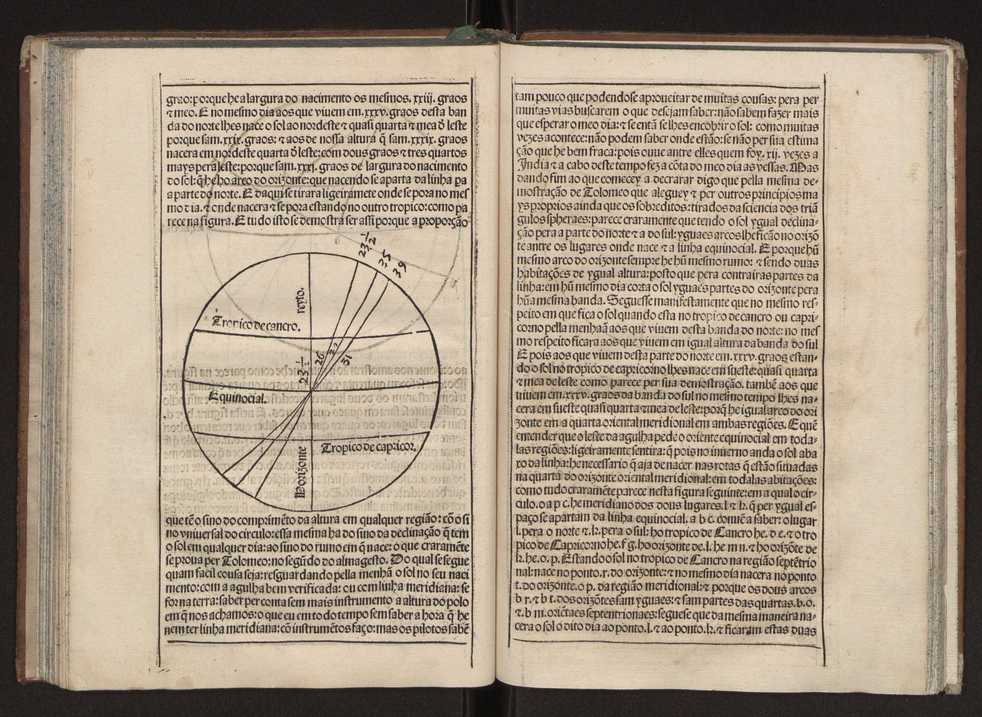 grao: porque he a largura do nacimento os mesmos. xxiij. graos
⁊ meo. E no mesmo dia aos que viuem em. xxxv. graos desta ban
da do norte lhes nace o sol ao nordeste ⁊ quasi quarta ⁊ mea d̃ leste
porque sam. xxix. graos: ⁊ aos de nossa altura q̃ sam. xxxix. graos
nacera em nordeste quarta d̃ leste: com dous graos ⁊ tres quartos
mays pera leste: porque sam. xxxj. graos de largura do nacimento
do sol: q̃ he ho arco do orizonte: que nacendo se aparta da linha pa
a parte do norte. E daqui se tirara ligeiramẽte onde se pora no mes
mo dia. ⁊ onde nacera ⁊ se pora estando no outro tropico: como pa
rece na figura. E tudo isto se demostra ser assi porque a proporção
23 1/2
35
39
recto.
Tropico de cancro.
23 1/2
26
31
Equinocial.
Tropico de capricor.
Horizonte
que tẽ o sino do comprimẽto da altura em qualquer região: cõ o si
no vniuersal do circulo: essa mesma ha do sino da declinação q̃ tem
o sol em qualquer dia: ao sino do rumo em q̃ nace: o que craramẽte
se proua per Tolomeo: no segũdo do almagesto. Do qual se segue
quam facil cousa seja: resguardando pella menhã o sol no seu naci
mento: com a agulha bem verificada: ou com linha meridiana: se
for na terra: saber per conta sem mais instrumento a altura do polo
em q̃ nos achamos: o que eu em todo tempo sem saber a hora q̃ he
nem ter linha meridiana: cõ instrumẽtos faço: mas os pilotos sabẽ
tam pouco que podendose aproueitar de muitas cousas: pera per
muitas vias buscarem o que desejam saber: não sabem fazer mais
que esperar o meo dia: ⁊ se entã se lhes encobrir o sol: como muitas
vezes acontece: não podem saber onde estão: se não per sua estima
ção que he bem fraca: pois ouue antre elles quem foy. xij. vezes a
India ⁊ a cabo deste tempo fez a cõta do meo dia as vessas. Mas
dando fim ao que comecey a decrarar digo que pella mesma de-
mostração de Tolomeo que aleguey ⁊ per outros principios ma
ys proprios ainda que os sobreditos: tirados da sciencia dos triã
gulos spheraes: parece craramente que tendo o sol ygual declina-
ção pera a parte do norte ⁊ a do sul: yguaes arcos lhe ficão no orizõ
te antre os lugares onde nace ⁊ a linha equinocial. E porque hũ
mesmo arco do orizonte sempre he hũ mesmo rumo: ⁊ sendo duas
habitações de ygual altura: posto que pera contrairas partes da
linha: em hũ mesmo dia corta o sol yguaes partes do orizonte pera
hũa mesma banda. Seguesse manifestamente que no mesmo res-
peito em que fica o sol quando esta no tropico de cancro ou capri-
corno pella menhaã aos que viuem desta banda do norte: no mes
mo respeito ficara aos que viuem em igual altura da banda do sul
E pois aos que viuem desta parte do norte em. xxxv. graos estan-
do o sol no tropico de capricornio lhes nace em sueste: quasi quarta
⁊ mea de leste como parece per sua demostração. tambẽ aos que
viuem em. xxxv. graos da banda do sul no mesmo tempo lhes na-
cera em sueste quasi quarta ⁊ mea de leste: porq̃ he igual arco do ori
zonte em a quarta oriental meridional em ambas regiões. E quẽ
entender que o leste da agulha pede o oriente equinocial em toda-
las regiões: ligeiramente sentira: q̃ pois no inuerno anda o sol aba
xo da linha: he necessario q̃ aja de nacer nas rotas q̃ estão situadas
na quarta do orizonte oriental meridional: em todalas abitações:
como tudo craramẽte parece nesta figura seguinte: em a qual o cir-
culo. o a p c. he meridiano dos dous lugares. l ⁊ k. q̃ per ygual es-
paço se apartam da linha equinocial. a b c. conuẽ a saber: o lugar
l. pera o norte ⁊ k. pera o sul: ho tropico de Cancro he. d e. ⁊ o tro
pico de Capricornio he. f g. ho orizonte de. l. he m n. ⁊ ho orizõte de
k. he. o. p. Estando o sol no tropico de Cancro na região septẽtrio
nal: nace no ponto. r. do orizonte: ⁊ no mesmo dia nacera no ponto
t. do orizonte. o p. da região meridional: ⁊ porque os dous arcos
b r. ⁊ b t. dos orizõtes sam yguaes: ⁊ sam partes das quartas. b. o.
⁊ b m. oriẽtaes septentrionaes: seguese que da mesma maneira na-
cera o sol o dito dia ao ponto. l. ⁊ ao ponto. k. ⁊ ficaram estas duas